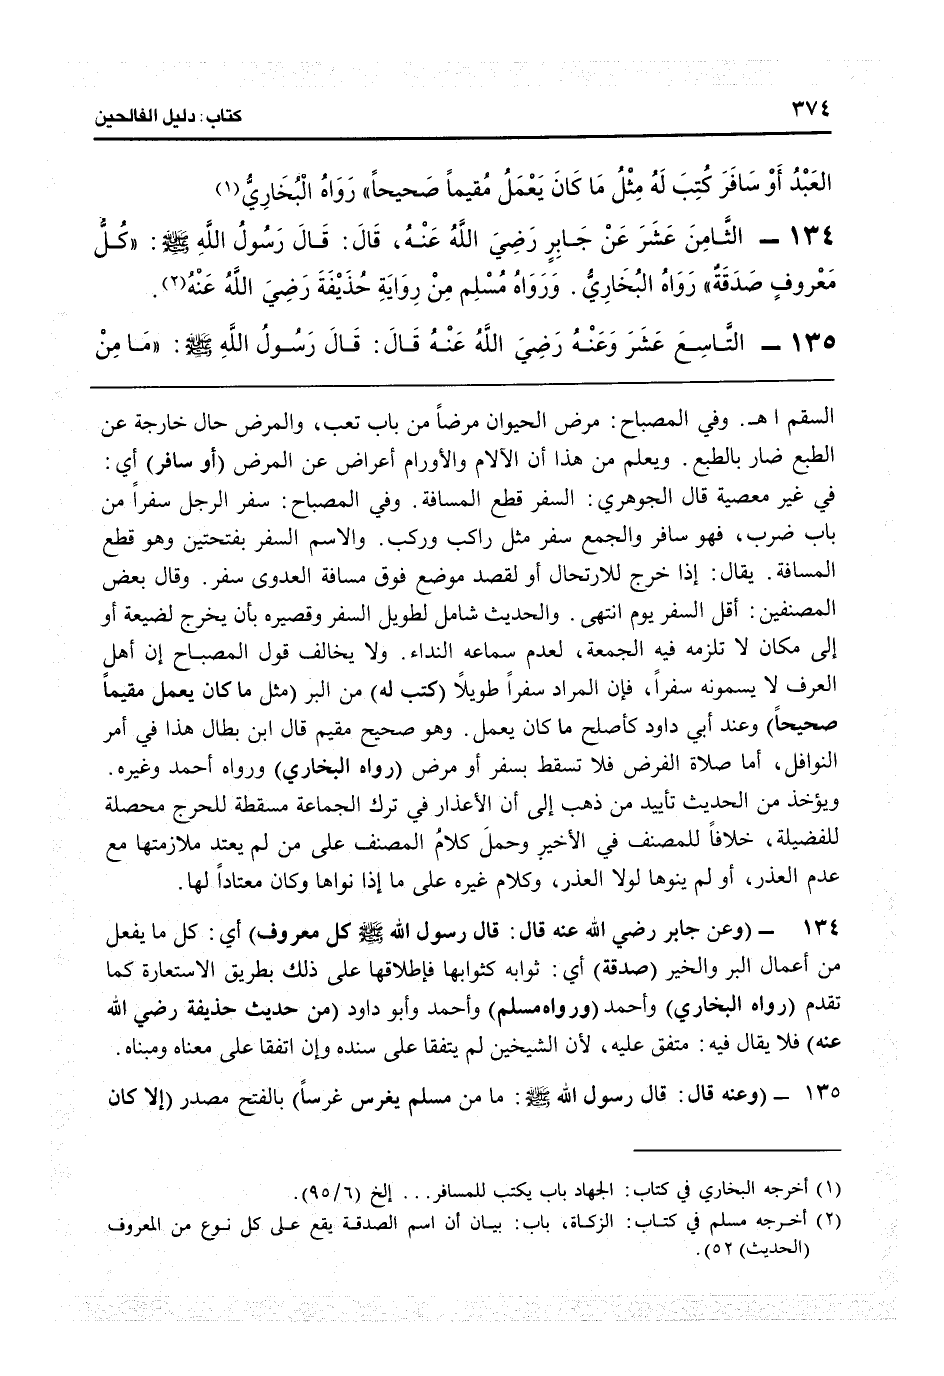 ٣٧٤
كتاب: دليل الفالحين
العَبْدُ أَوْ سَافَرَ كُتِبَ لَهُ مِثْلُ مَا كَانَ يَعْمَلُ مُقيماً صَحيحاً» رَوَاهُ الْبُخَارِيُّ(١)
١٣٤ ــ الثَّامِنَ عَشَرَ عَنْ جَابِرٍ رَضِيَ اللَّهُ عَنْهُ، قَالَ: قَالَ رَسُولُ اللَّهِ ﷺ: «كُلُّ
مَعْروفٍ صَدَقَةٌ» رَوَاهُ البُخَارِيُّ. وَرَوَاهُ مُسْلِم مِنْ رِوَايَةِ حُذَيْفَةَ رَضِيَ اللَّهُ عَنْهُ(٢).
١٣٥ ــ التَّاسِعَ عَشَرَ وَعَنْهُ رَضِيَ اللَّهُ عَنْهُ قَالَ: قَالَ رَسُولُ اللَّهِ ﷺ: «مَا مِنْ
السقم اهـ. وفي المصباح: مرض الحيوان مرضاً من باب تعب، والمرض حال خارجة عن
الطبع ضار بالطبع. ويعلم من هذا أن الآلام والأورام أعراض عن المرض (أو سافر) أي:
في غير معصية قال الجوهري: السفر قطع المسافة. وفي المصباح: سفر الرجل سفراً من
باب ضرب، فهو سافر والجمع سفر مثل راكب وركب. والاسم السفر بفتحتين وهو قطع
المسافة. يقال: إذا خرج للارتحال أو لقصد موضع فوق مسافة العدوى سفر. وقال بعض
المصنفين: أقل السفر يوم انتهى. والحديث شامل لطويل السفر وقصيره بأن يخرج لضيعة أو
إلى مكان لا تلزمه فيه الجمعة، لعدم سماعه النداء. ولا يخالف قول المصباح إن أهل
العرف لا يسمونه سفراً، فإن المراد سفراً طويلًا (كتب له) من البر (مثل ما كان يعمل مقيماً
صحيحاً) وعند أبي داود كأصلح ما كان يعمل. وهو صحيح مقيم قال ابن بطال هذا في أمر
النوافل، أما صلاة الفرض فلا تسقط بسفر أو مرض (رواه البخاري) ورواه أحمد وغيره.
ويؤخذ من الحديث تأييد من ذهب إلى أن الأعذار في ترك الجماعة مسقطة للحرج محصلة
للفضيلة، خلافاً للمصنف في الأخيرِ وحملَ كلامُ المصنف على من لم يعتد ملازمتها مع
عدم العذر، أو لم ينوها لولا العذر، وكلام غيره على ما إذا نواها وكان معتاداً لها.
١٣٤ ــ (وعن جابر رضي الله عنه قال: قال رسول الله ﷺ كل معروف) أي: كل ما يفعل
من أعمال البر والخير (صدقة) أي: ثوابه كثوابها فإطلاقها على ذلك بطريق الاستعارة كما
تقدم (رواه البخاري) وأحمد (ورواه مسلم) وأحمد وأبو داود (من حديث حذيفة رضي الله
عنه) فلا يقال فيه: متفق عليه، لأن الشيخين لم يتفقا على سنده وإن اتفقا على معناه ومبناه.
١٣٥ ــ (وعنه قال: قال رسول الله ﷺ: ما من مسلم يغرس غرساً) بالفتح مصدر (إلا كان
(١) أخرجه البخاري في كتاب: الجهاد باب يكتب للمسافر... إلخ (٩٥/٦).
(٢) أخرجه مسلم في كتاب: الزكاة، باب: بيان أن اسم الصدقة يقع على كل نوع من المعروف
(الحديث) ٥٢).